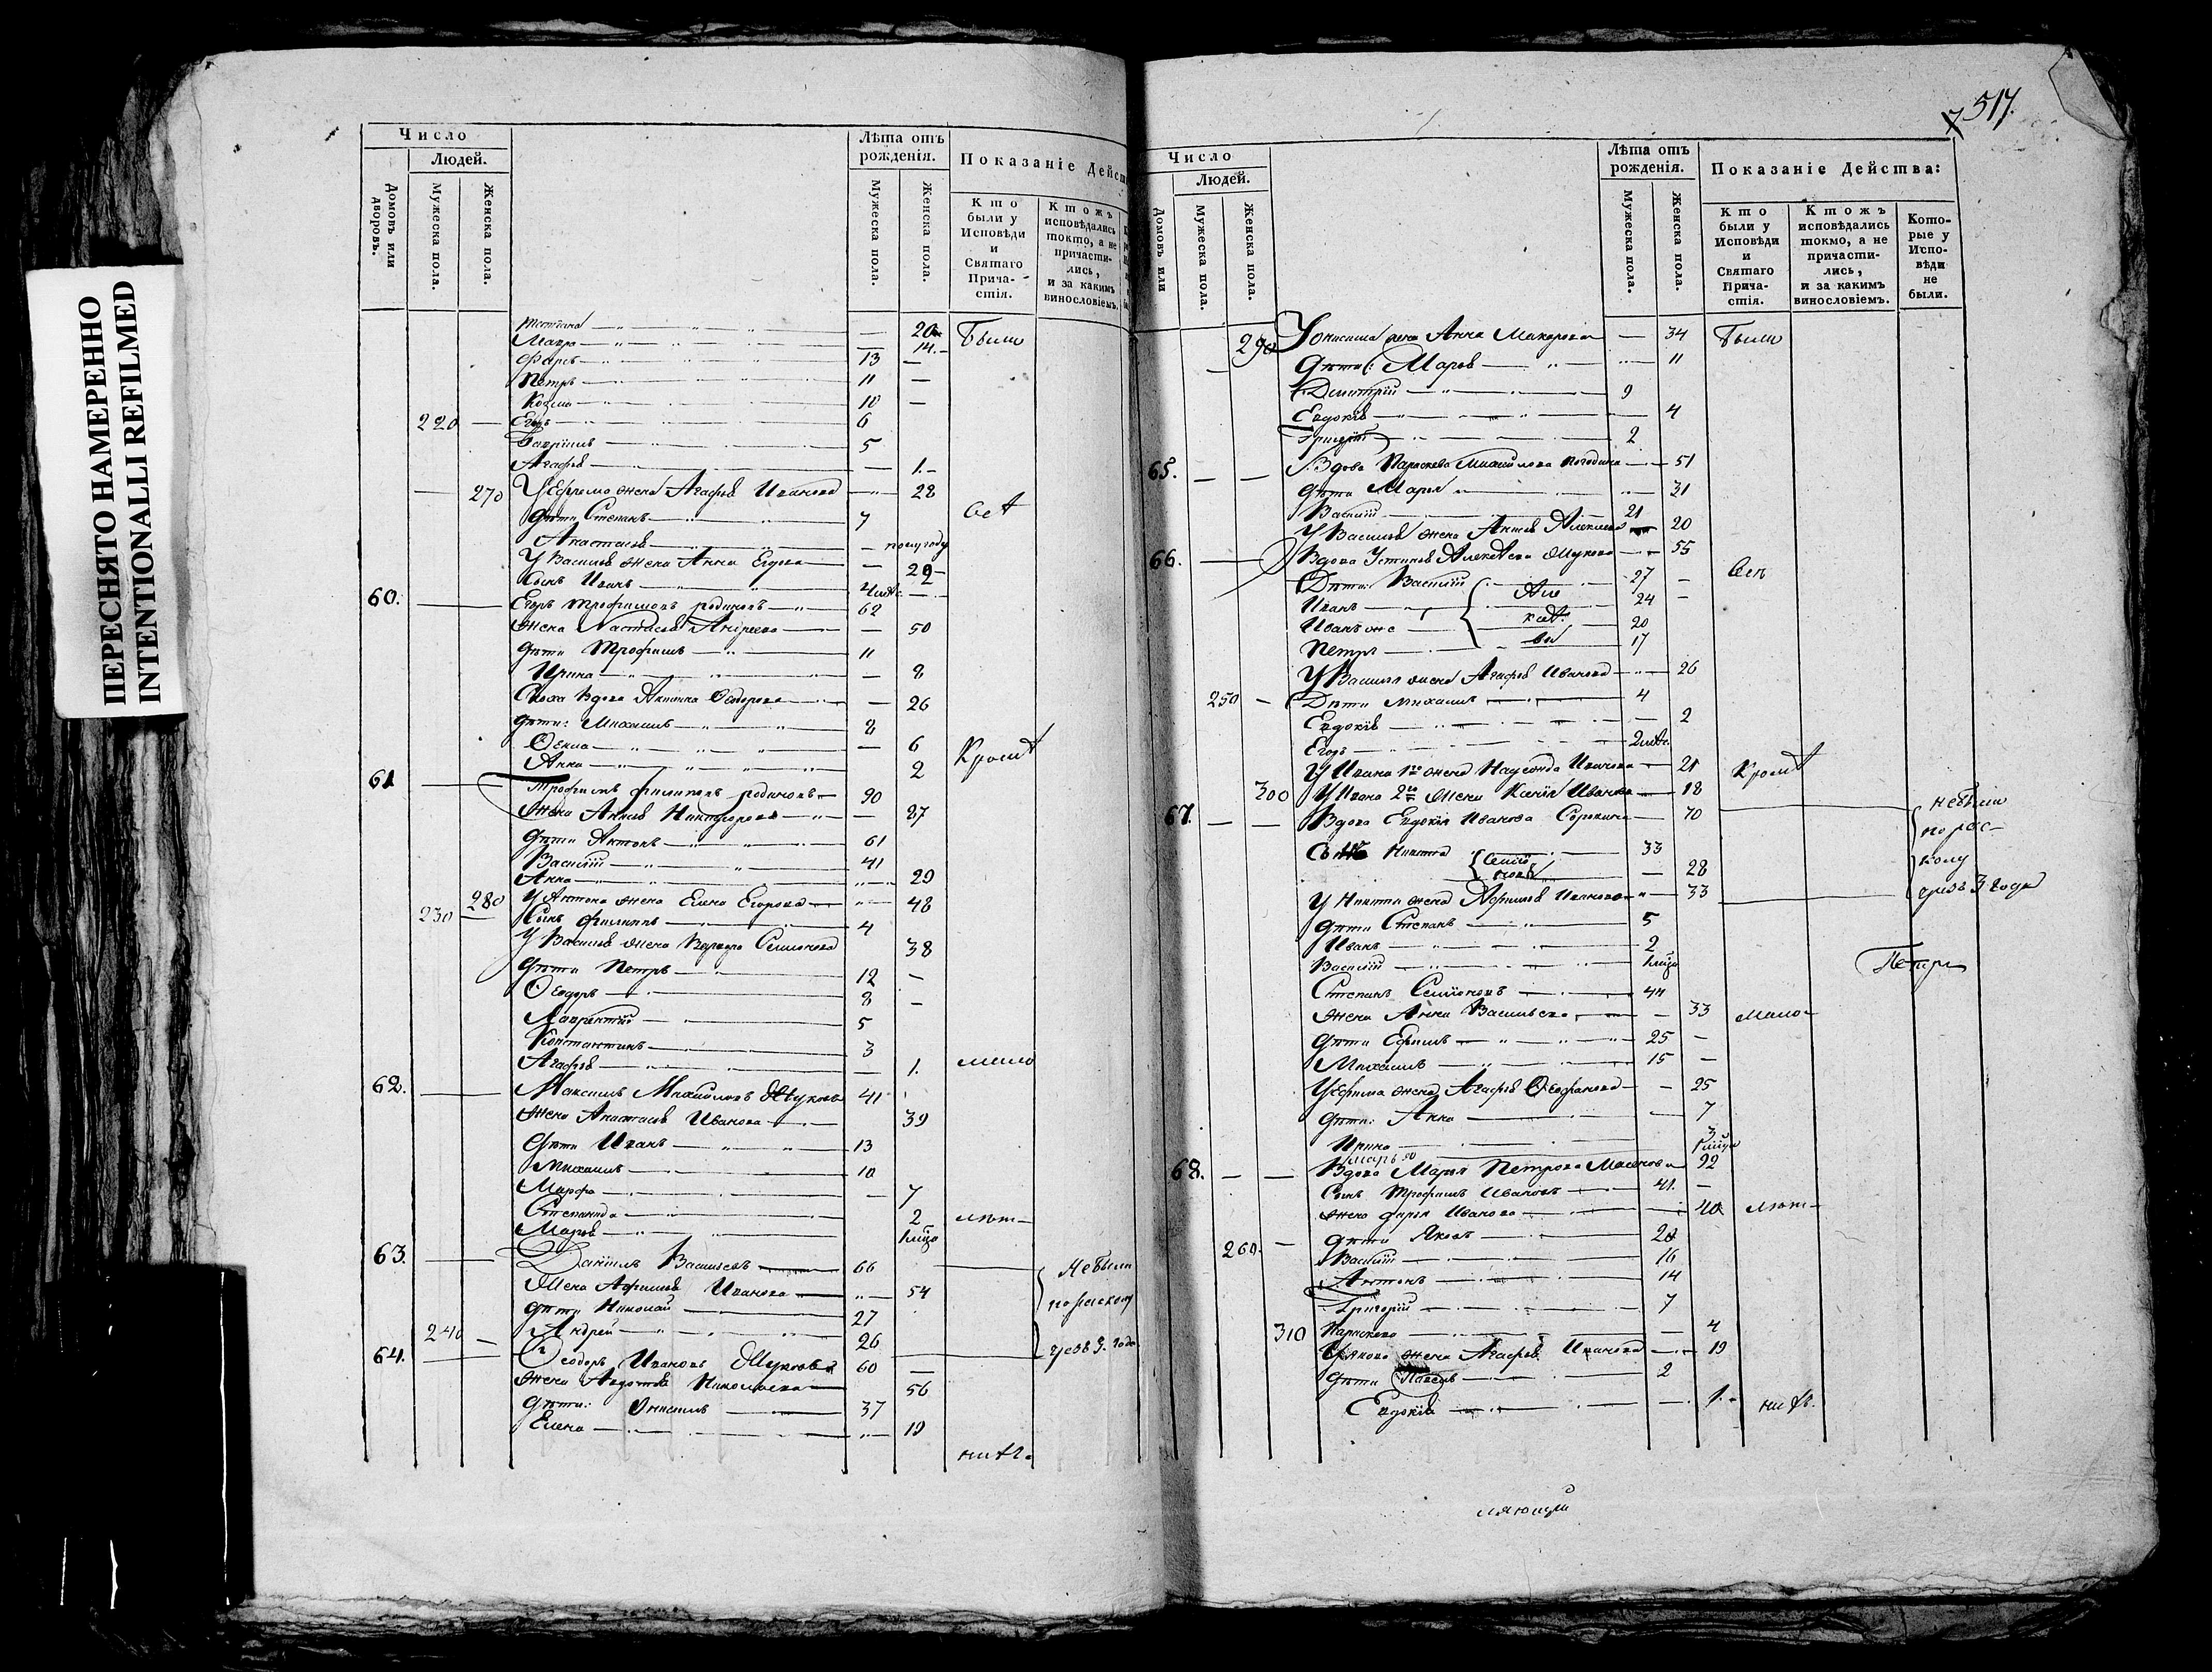 ПЕРЕСНЯТО НАМЕРЕННО
INTENTIONALLI REFILMED
517.
Число
Людей.
Домовъ или дворовъ.
Мужеска пола.
Женска пола.
Лѣта отъ рожденія.
Мужеска пола.
Женска пола.
Показаніе Дейст
Кто были у Исповѣди и Святаго Причастія.
Ктожъ исповѣдались токмо, а не причастились, и за какимъ винословіемъ.
Татiана — 20
Мавра — 14
Дарья 13 —
Петръ — 11 —
Козма — 10 —
220 — Егоръ — 6
Гаврiилъ — 5
Агафья — 1
Были
270 У Ефрема жена Агафья Иванова — 28
дѣти Степанъ — 7
Анастасья — полугоду
У Василья жена Анна Егорова — 29
Сынъ Иванъ —
60. Егоръ Трофимовъ Родиновъ — 62
Жена Настасья Андреева — 50
дѣти Трофимъ — 11
Ирина — 8
Сноха вдова Акилина Ѳедорова — 26
дѣти: Михаилъ — 8
Ѳекла — 6
Анна — 2
Кромѣ
61 Трофимъ Филиповъ Родиновъ — 90
Жена Анна Никифорова — 87
дѣти Антонъ — 61
Василiй — 41
Анна — 29
230 280 У Антона жена Елена Егорова — 48
Сынъ Филиппъ — 4
У Василья жена Варвара Семионова 38
дѣти Петръ — 12 —
Ѳеодоръ — 8 —
Лаврентiй — 5
Константинъ — 3
Агафья — 1.
мало
62. Максимъ Михайловъ Жуковъ 41
Жена Анастасья Иванова — 39
дѣти Иванъ — 13
Михаилъ — 10
Марфа — 7
Степанида — 2
Марья —
лѣт-
63. Данiилъ Васильевъ — 66
Жена Афимья Иванова — 54
дѣти Николай — 27
240 — Андрей — 26
Не были
по расколу
чрезъ 3 года
64. Ѳеодоръ Ивановъ Жуковъ 60 —
Жена Авдотья Николаева — 56
дѣти: Онисимъ — 37
Елена — 19
нихъ.
Число
Людей.
Домовъ или
Мужеска пола.
Женска пола.
Лѣта отъ рожденія.
Мужеска пола.
Женска пола.
Показаніе Действа:
Кто были у Исповѣди и Святаго Причастія.
Ктожъ исповѣдались токмо, а не причастились, и за какимъ винословіемъ.
Которые у Исповѣди не были.
290 У Онисима жена Анна Макарова — 34
Были
дѣти: Марья — 11
Дмитрiй — 9
Евдокiя — 4
Григорiй — 2
65. Вдова Параскева Михайлова Погодина — 51
дѣти Марья — 31
Василiй — 21
У Василья жена 20
66. Вдова Устинья Алексѣева Жукова — 55
Всѣ
Дѣти: Василiй — 27 —
Иванъ — 24 —
Иванъ же — 20
Петръ — 17
Але
ксѣ
вы
У Василья жена Агафья Иванова — 26
250 — Дѣти Михаилъ — 4
Евдокiя — 2
Егоръ — 2 мѣс.
У Ивана 1го жена Иванова — 21
Кромѣ
300 У Ивана 2го жена Ксенiя Иванова — 18
67. Вдова Евдокiя Иванова Сорокина — 70
не были
по рас-
колу
чрезъ 3 года
Никита — 33
Семiо
новы — 28
У Никиты жена Афимья Иванова — 33
дѣти Степанъ — 5
Иванъ — 2
Василiй —
Петръ
Степанъ Семiоновъ — 44
Жена Анна Васильева — 33
мало-
дѣти Ефимъ — 25 —
Михаилъ — 15 —
У Ефима жена Агафья Ѳеофанова — 25
дѣти: Анна — 7
Ирина — 3
Марья
68. Вдова Марья Петрова 92
Сынъ Трофимъ Ивановъ — 41. —
Жена Дарья Иванова — 40
лѣт-
260. — дѣти Яковъ — 20
Василiй — 16
Антонъ — 14
Григорiй — 7
310 Параскева — 4
У Якова жена Агафья Иванова — 19
дѣти Павелъ — 2
Евдокiя — 1.
нихъ.